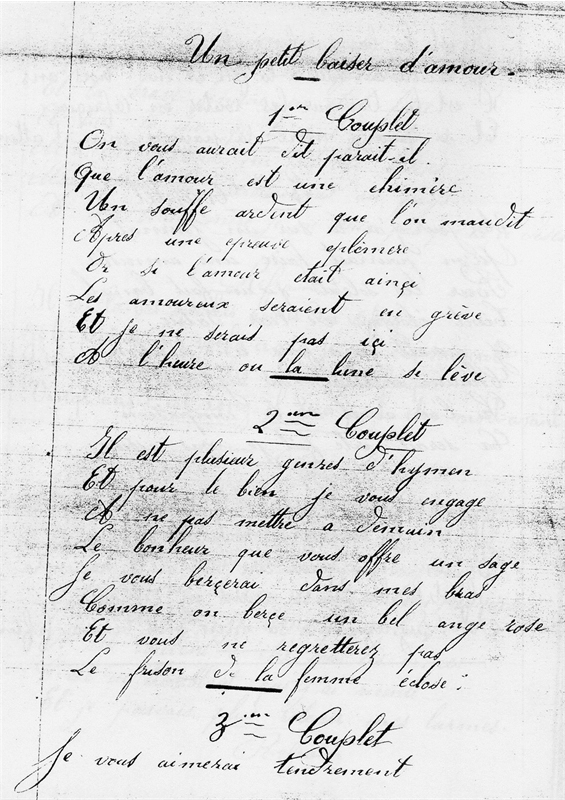 Un petit baiser d'amour.
1er Couplet.
On vous aurait dit parait-il.
Que l'amour est une chimère
Un souffe ardent que l'on maudit
Apres une epreuve ephémère
Or si l'amour était ainçi
Les amoureux seraient en grève
Et je ne serais pas içi
A l'heure ou la lune se lève
2em Couplet
Il est plusieur genres d'hymen
Et pour le bien je vous engage
A ne pas mettre a demain
Le bonheur que vous offre un sage
Je vous berçerai dans mes bras
Comme on berçe un bel ange rose
Et vous ne regretterez pas
Le frison de la femme éclose :
3em Couplet
Je vous aimerai tendrement